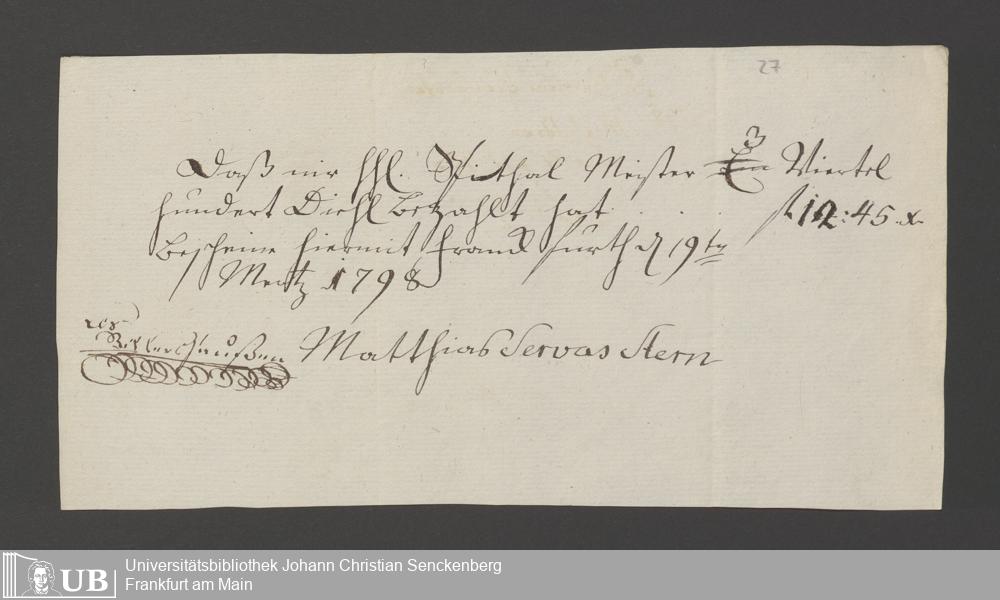 27
Daß mir HHl. Spithal Meister 3 Viertel
hundert Diehl bezahlt hat . . . fl 12:45 x.
bescheine hiermit Franckfurth d 19ten
Mertz 1798
Matthias Servas Stern
UB
Universitätsbibliothek Johann Christian Senckenberg
Frankfurt am Main